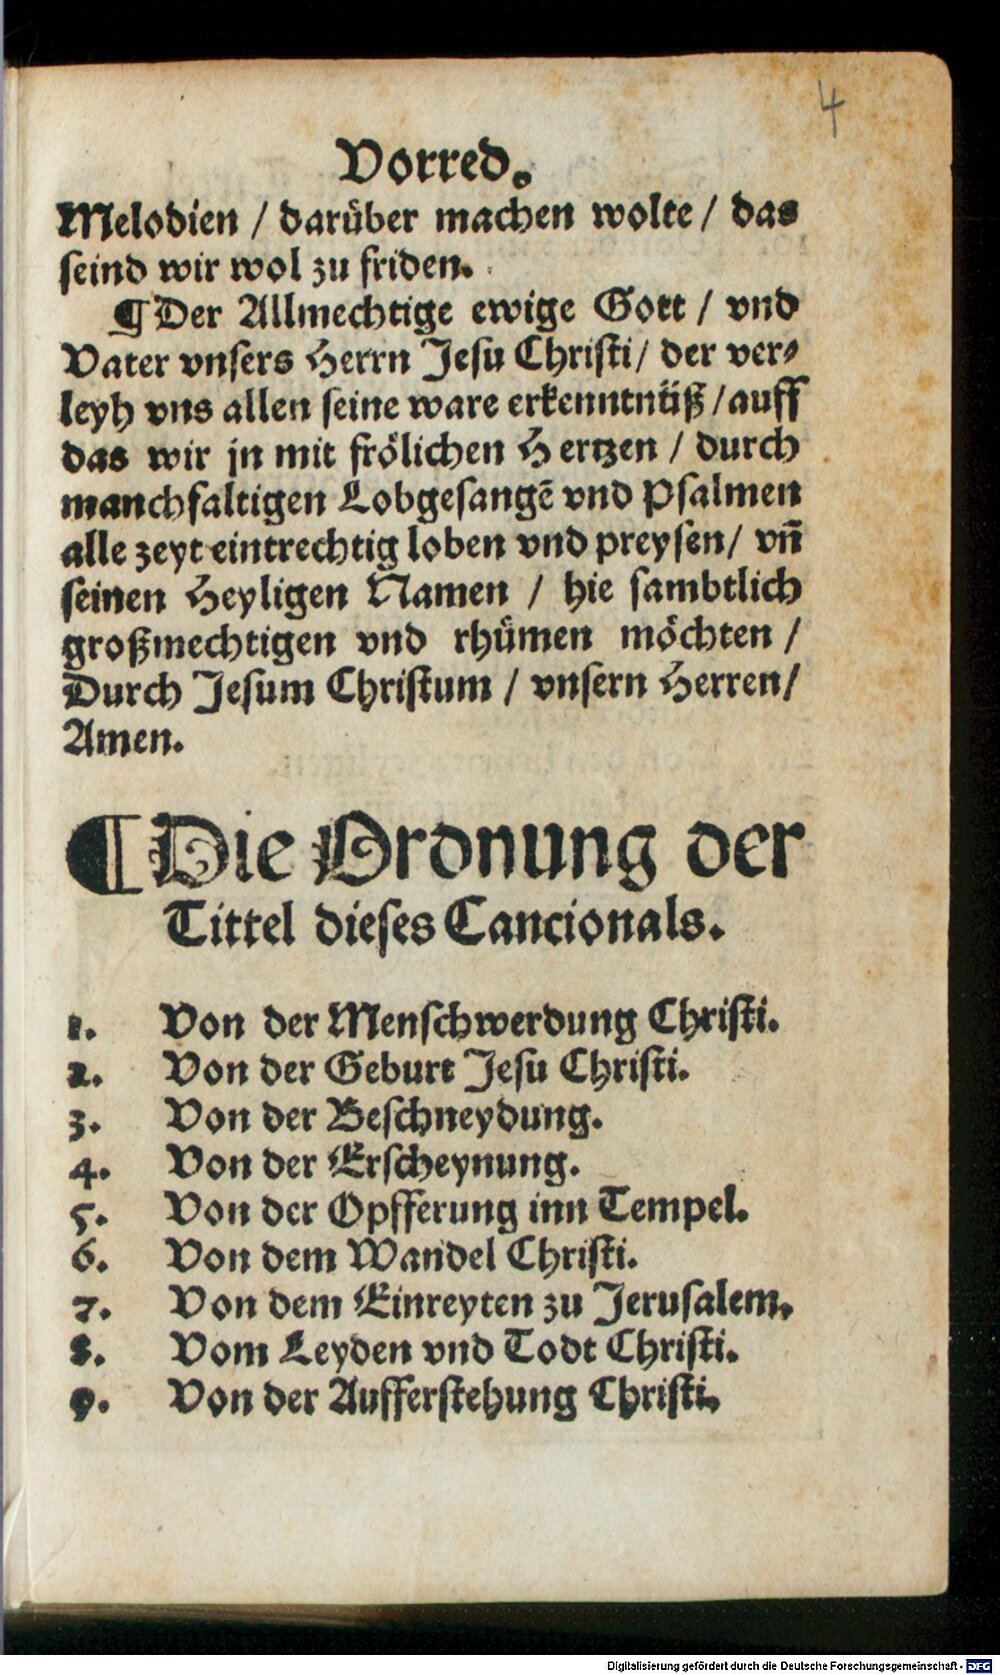 4
Vorred.
Melodien / darüber machen wolte / das
seind wir wol zu friden.
¶ Der Allmechtige ewige Gott / vnd
Vater vnsers Herrn Jesu Christi / der ver⸗
leyh vns allen seine ware erkenntnüß / auff
das wir jn mit frölichen Hertzen / durch
manchfaltigen Lobgesangē vnd Psalmen
alle zeyt eintrechtig loben vnd preysen / vñ
seinen Heyligen Namen / hie sambtlich
großmechtigen vnd rhümen möchten /
Durch Jesum Christum / vnsern Herren /
Amen.
¶ Die Ordnung der
Tittel dieses Cancionals.
1. Von der Menschwerdung Christi.
2. Von der Geburt Jesu Christi.
3. Von der Beschneydung.
4. Von der Erscheynung.
5. Von der Opfferung inn Tempel.
6. Von dem Wandel Christi.
7. Von dem Einreyten zu Jerusalem.
8. Vom Leyden vnd Todt Christi.
9. Von der Aufferstehung Christi.
Digitalisierung gefördert durch die Deutsche Forschungsgemeinschaft - DFG